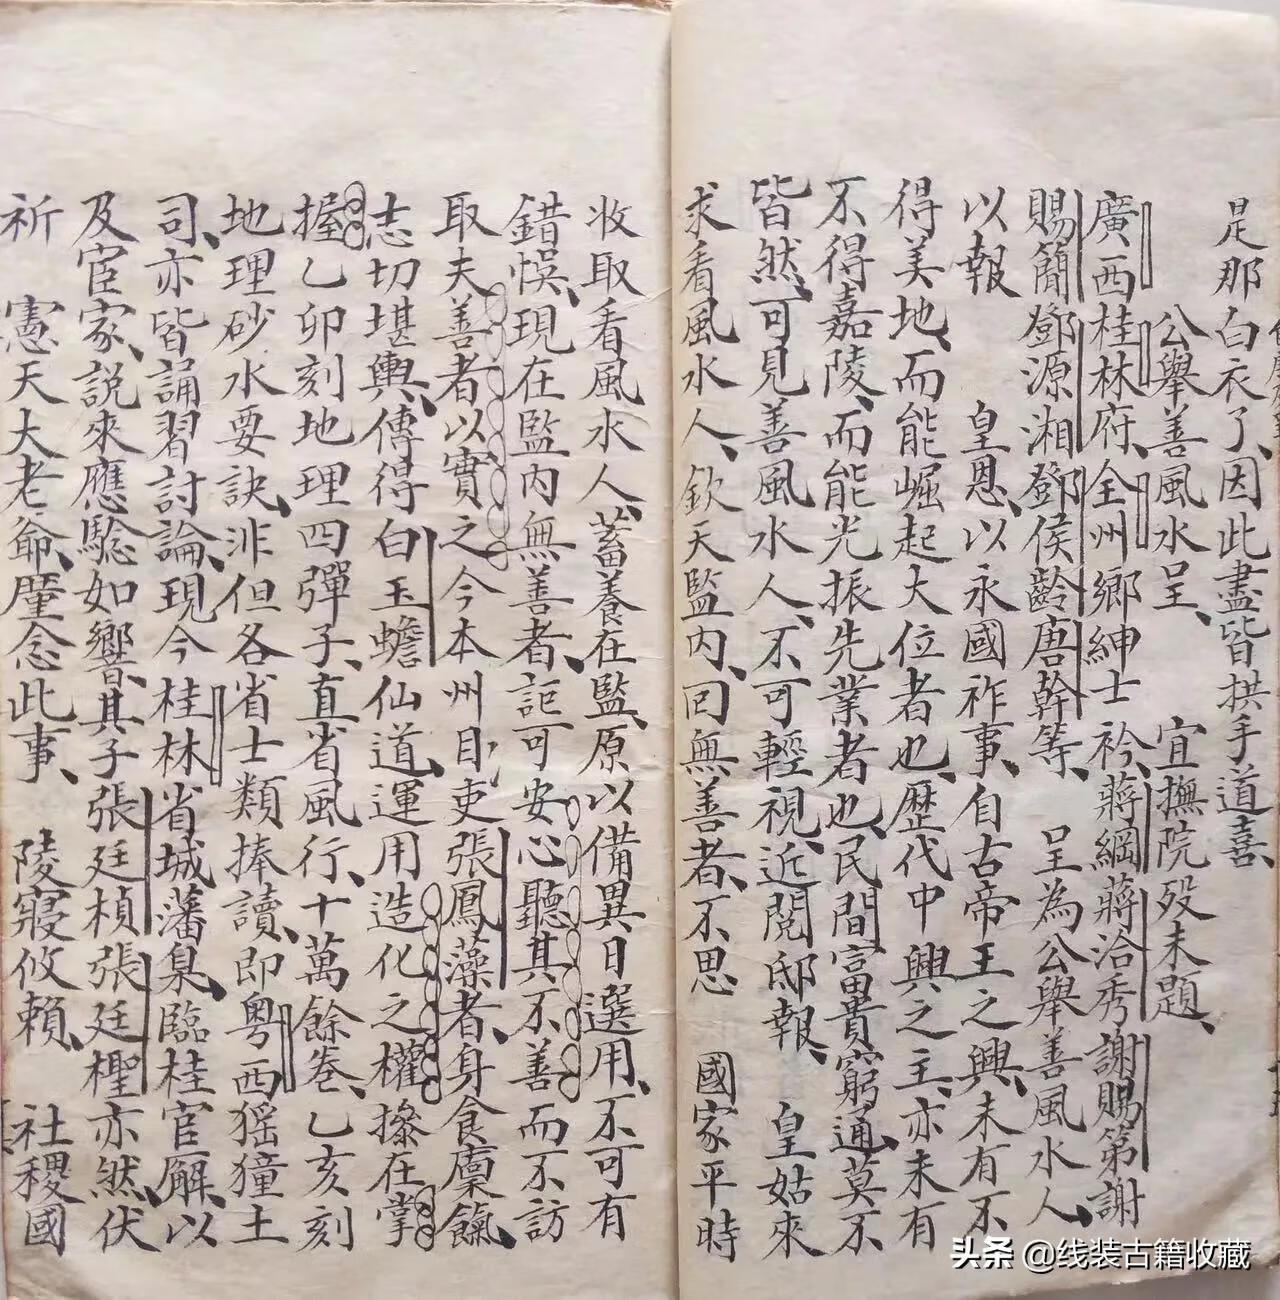 是那白衣了、因此盡皆拱手道喜、
公舉善風水呈、　宜撫院殁未題、
廣西桂林府、全州鄉紳士　衿、蔣綱蔣洽秀謝賜第謝
賜簡鄧源湘鄧侯齡唐幹等、　呈為公舉善風水人、
以報　皇恩、以永國祚事、自古帝王之興、未有不
得美地、而能崛起大位者也、歷代中興之主、亦未有
不得嘉陵、而能光振先業者也、民間富貴窮通莫不
皆然、可見善風水人、不可輕視、近閱邸報、　皇姑來
求看風水人、欽天監內、囙無善者、不思　國家平時
收取看風水人、蓄養在監、原以備異日選用、不可有
錯悞、現在監內無善者、詎可安心聽其不善而不訪
取夫善者以實之今本州目吏張鳳藻者、身食廩餼、
志切堪輿、傳得白玉蟾仙道、運用造化之權、搀在掌
握、乙卯刻地理四彈子、直省風行、十萬餘卷、乙亥刻
地理砂水要訣、非但各省士類捧讀、即粵西猺獞土
司、亦皆誦習討論、現今桂林省城藩臬、臨桂官解、以
及宦家、說來應騐如響、其子張廷楨張廷檉亦然、伏
祈　憲天大老爺、廑念此事、　陵寢攸賴、　社稷國
头条 @线装古籍收藏